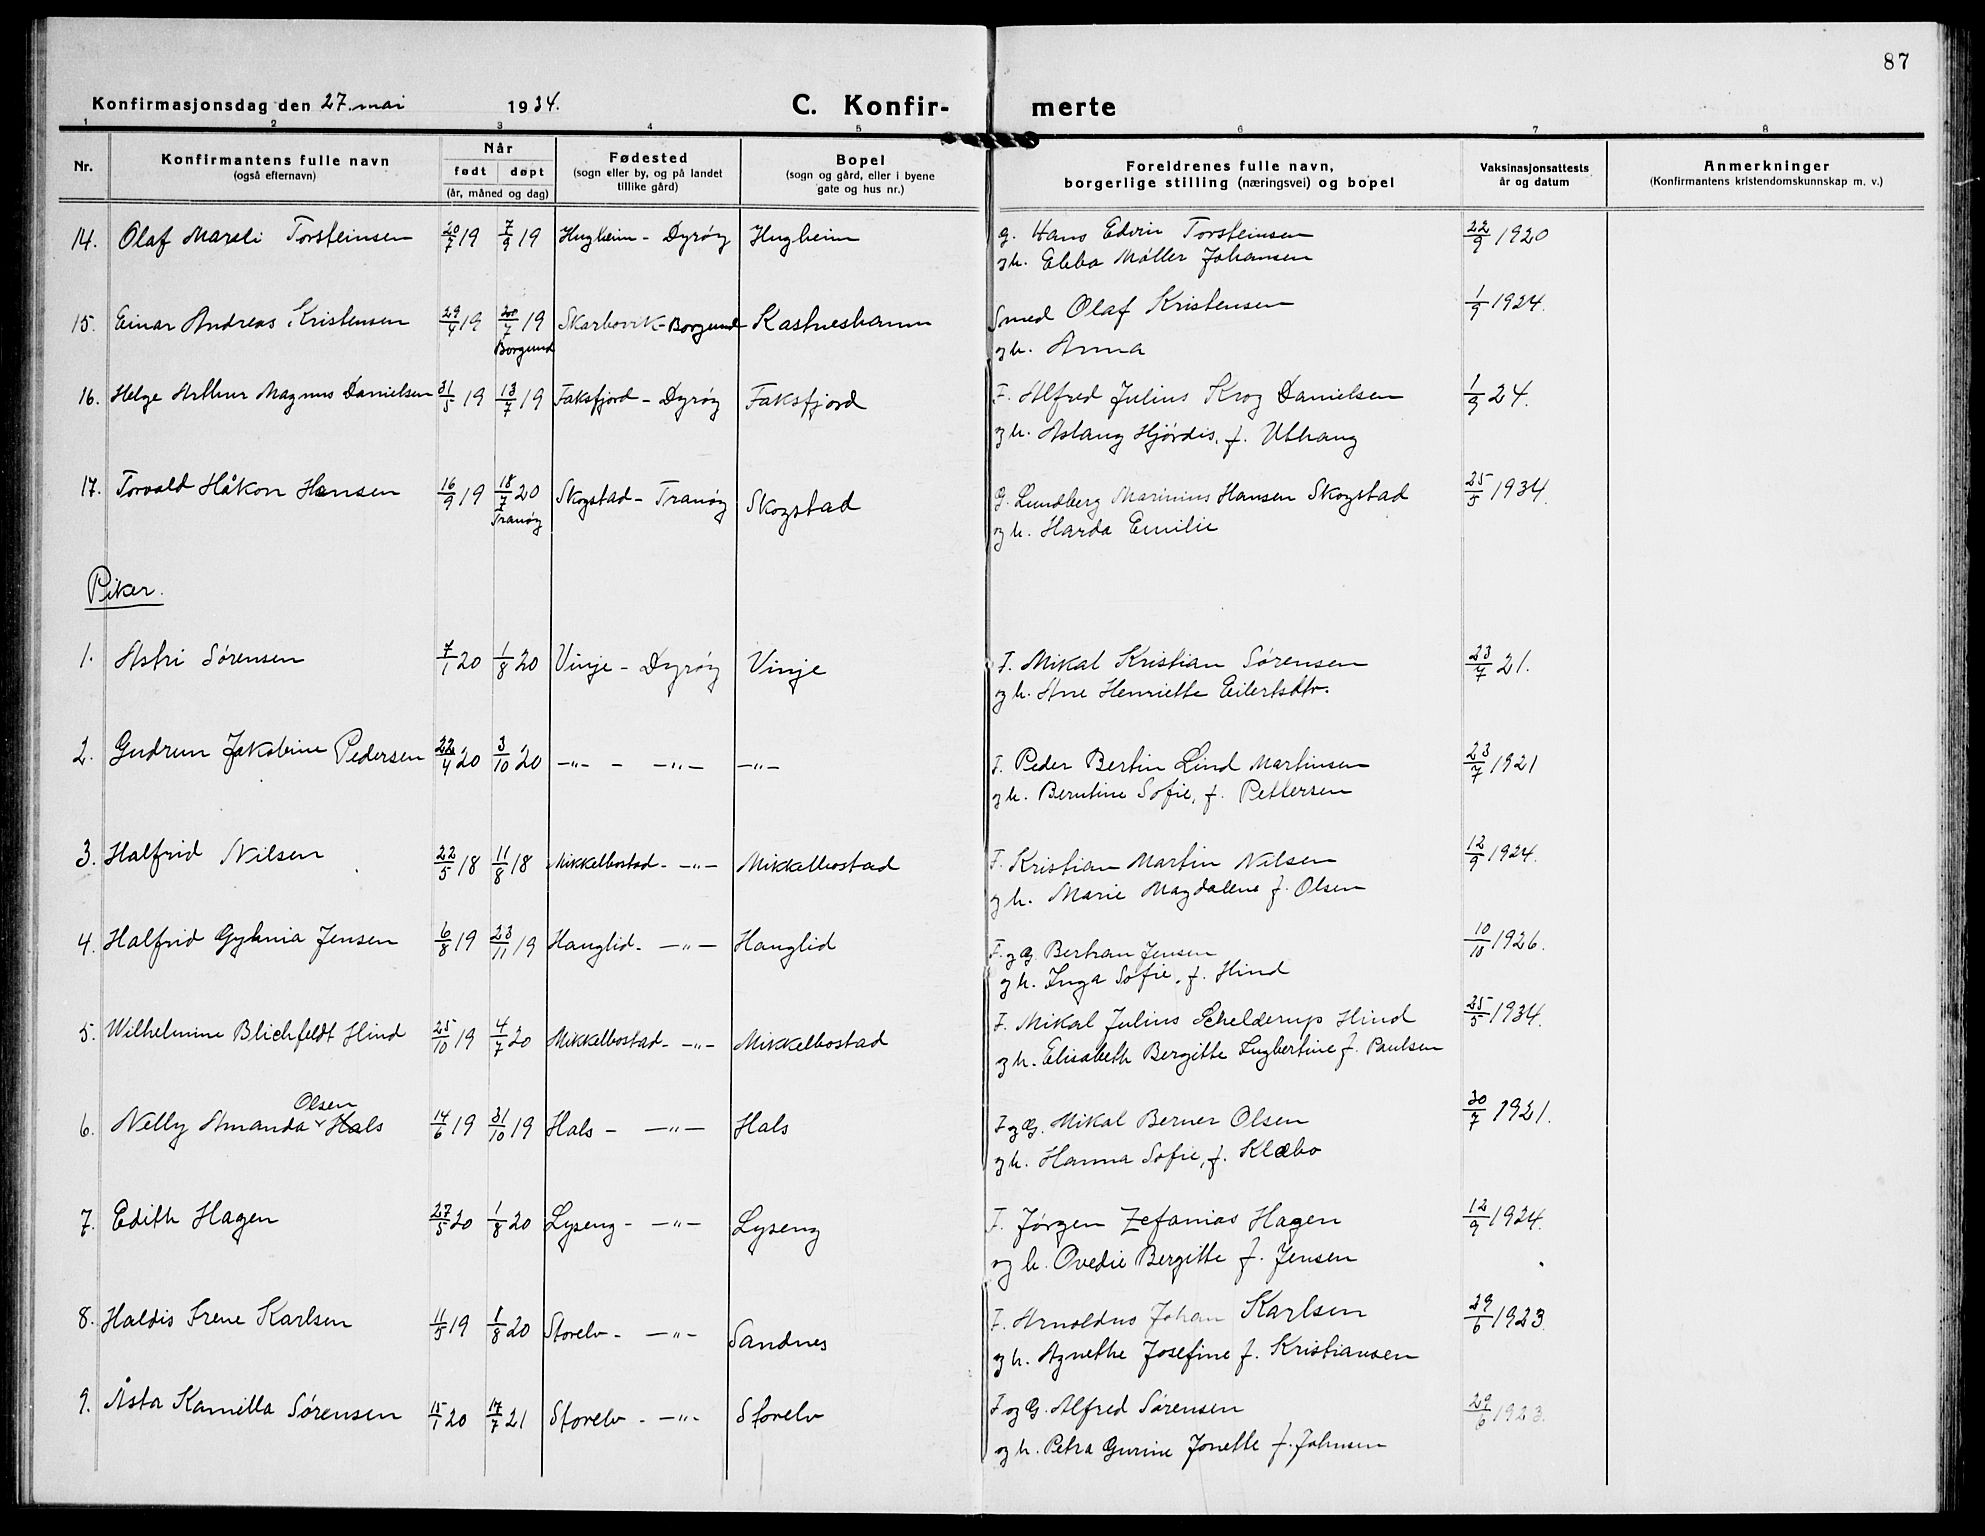 87
Konfirmasjonsdag den 27. mai 1934. C. Konfir- merte
1 2 3 4 5 6 7 8
Nr. Konfirmantens fulle navn (også efternavn) Når født døpt (år, måned og dag) Fødested (sogn eller by, og på landet tillike gård) Bopel (sogn og gård, eller i byene gate og hus nr.) Foreldrenes fulle navn, borgerlige stilling (næringsvei) og bopel Vaksinasjonsattests år og datum Anmerkninger (Konfirmantens kristendomskunnskap m. v.)
14. Olaf Mareli Torsteinsen 20/7 19 7/9 19 Hugheim - Dyrøy Hugheim g. Hans Edvin Torsteinsen 22/9 1920
og h. Ebba Møller Johansen
15. Einar Andreas Kristensen 29/4 19 20/7 19 Skarbovik - Borgund Kastneshamn Smed Olaf Kristensen 1/9 1924.
Borgund og h. Anna
16. Helge Arthur Magnus Danielsen 31/5 19 13/7 19 Faksfjord - Dyrøy Faksfjord F. Alfred Julius Krog Danielsen 1/9 24.
og h. Aslaug Hjørdis, f. Uthaug
17. Torvald Håkon Hansen 16/9 19 18/7 20 Skogstad - Tranøy Skogstad G. Lundberg Marinius Hansen Skogstad 25/5 1934.
Tranøy og h. Harda Emilie
Piker.
1. Astri Sørensen 7/1 20 1/8 20 Vinje - Dyrøy Vinje F. Mikal Kristian Sørensen 23/7 21.
og h. Ane Henriette Eilertsdtr.
2. Gudrun Jakobine Pedersen 22/4 20 3/10 20 -"- - -"- -"- F. Peder Bertin Lind Martinsen 23/7 1921
og h. Berntine Sofie, f. Pettersen
3. Halfrid Nilsen 22/5 18 11/8 18 Mikkelbostad - -"- Mikkelbostad F. Kristian Martin Nilsen 12/9 1924.
og h. Marie Magdalene f. Olsen
4. Halfrid Jensen 6/8 19 23/11 19 Hauglid - -"- Hauglid F. og G. Bertran Jensen 10/10 1926.
og h. Inga Sofie, f. Hind
5. Wilhelmine Blichfeldt Hind 25/10 19 4/7 20 Mikkelbostad - -"- Mikkelbostad F. Mikal Julius Schelderup Hind 25/5 1934.
og h. Elisabeth Bergitte Ingbertine f. Paulsen
Olsen
6. Nelly Amanda Hals 14/6 19 31/10 19 Hals - -"- Hals F og G. Mikal Berner Olsen 30/7 1921.
og h. Hanna Sofie, f. Klæbo
7. Edith Hagen 27/5 20 1/8 20 Lyseng - -"- Lyseng F. Jørgen Zefanias Hagen 12/9 1924.
og h. Ovedie Bergitte f. Jensen
8. Haldis Irene Karlsen 11/5 19 1/8 20 Storelv - -"- Sandnes F. Arnoldus Johan Karlsen 29/6 1923.
og h. Agnethe Josefine f. Kristiansen
9. Åsta Kamilla Sørensen 15/1 20 17/7 21 Storelv - -"- Storelv F og G. Alfred Sørensen 29/6 1923.
og h. Petra Gurine Jonette f. Johnsen